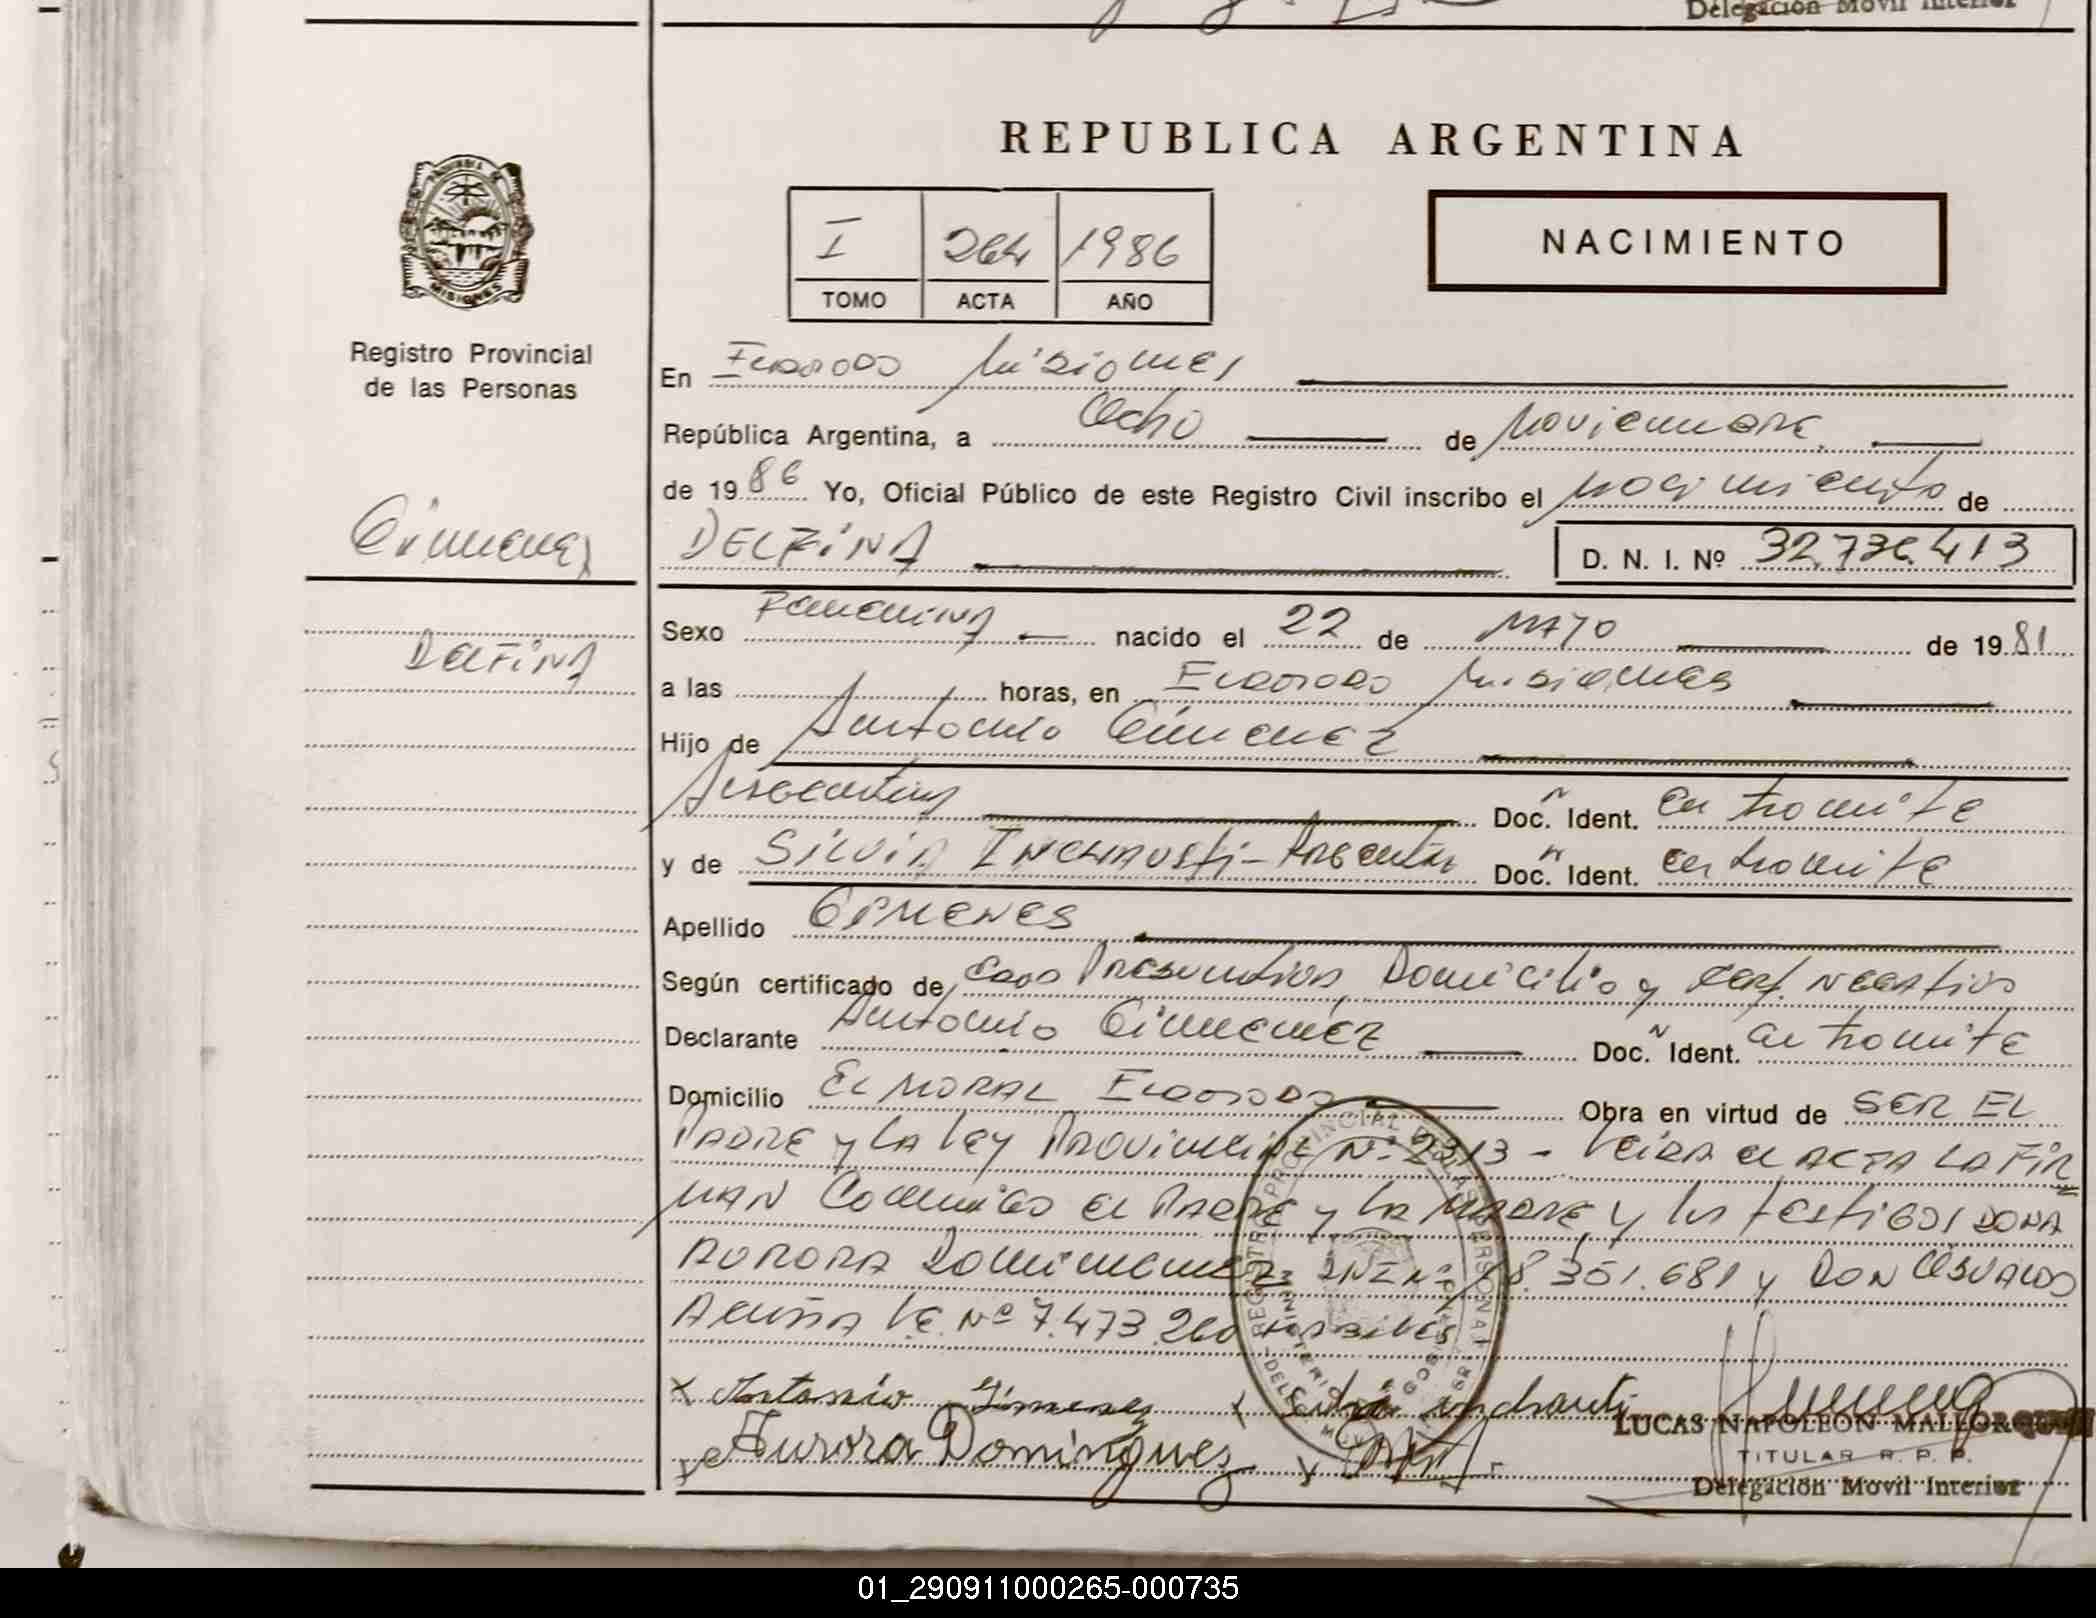 Delegación Móvil Interior
REPUBLICA ARGENTINA
PROVINCIA DE
MISIONES
I 264 1986
TOMO ACTA AÑO
NACIMIENTO
Registro Provincial
de las Personas
En Eldorado Misiones
República Argentina, a Ocho de Noviembre
de 1986 Yo, Oficial Público de este Registro Civil inscribo el nacimiento de
Gimenez
DELFINA
D. N. I. Nº 32.736.413
DELFINA
Sexo Femenina nacido el 22 de MAYO de 1981
a las horas, en Eldorado Misiones
Hijo de Antonio Gimenez
Argentino Doc. N Ident. en tramite
y de Silvia Inchausti - Argentina Doc. N Ident. en tramite
Apellido GIMENES
Según certificado de Edad Presuntiva, Domicilio y Cert. Negativo
Declarante Antonio Gimenez Doc. N Ident. en tramite
Domicilio EL MORAL Eldorado Obra en virtud de SER EL
PADRE y LA LEY PROVINCIAL Nº 2313 - Leida el ACTA LA FIR
MAN Conmigo el PADRE y LA MADRE y los testigos DOÑA
AURORA Dominguez DNI Nº 18.351.681 y DON OSVALDO
ACUÑA L.E. Nº 7.473.260 HABILES
x Antonio Gimenez x Silvia inchausti
x Aurora Domingues x
LUCAS NAPOLEON MALLORQUIN
TITULAR R. P. P.
Delegación Móvil Interior
01_290911000265-000735